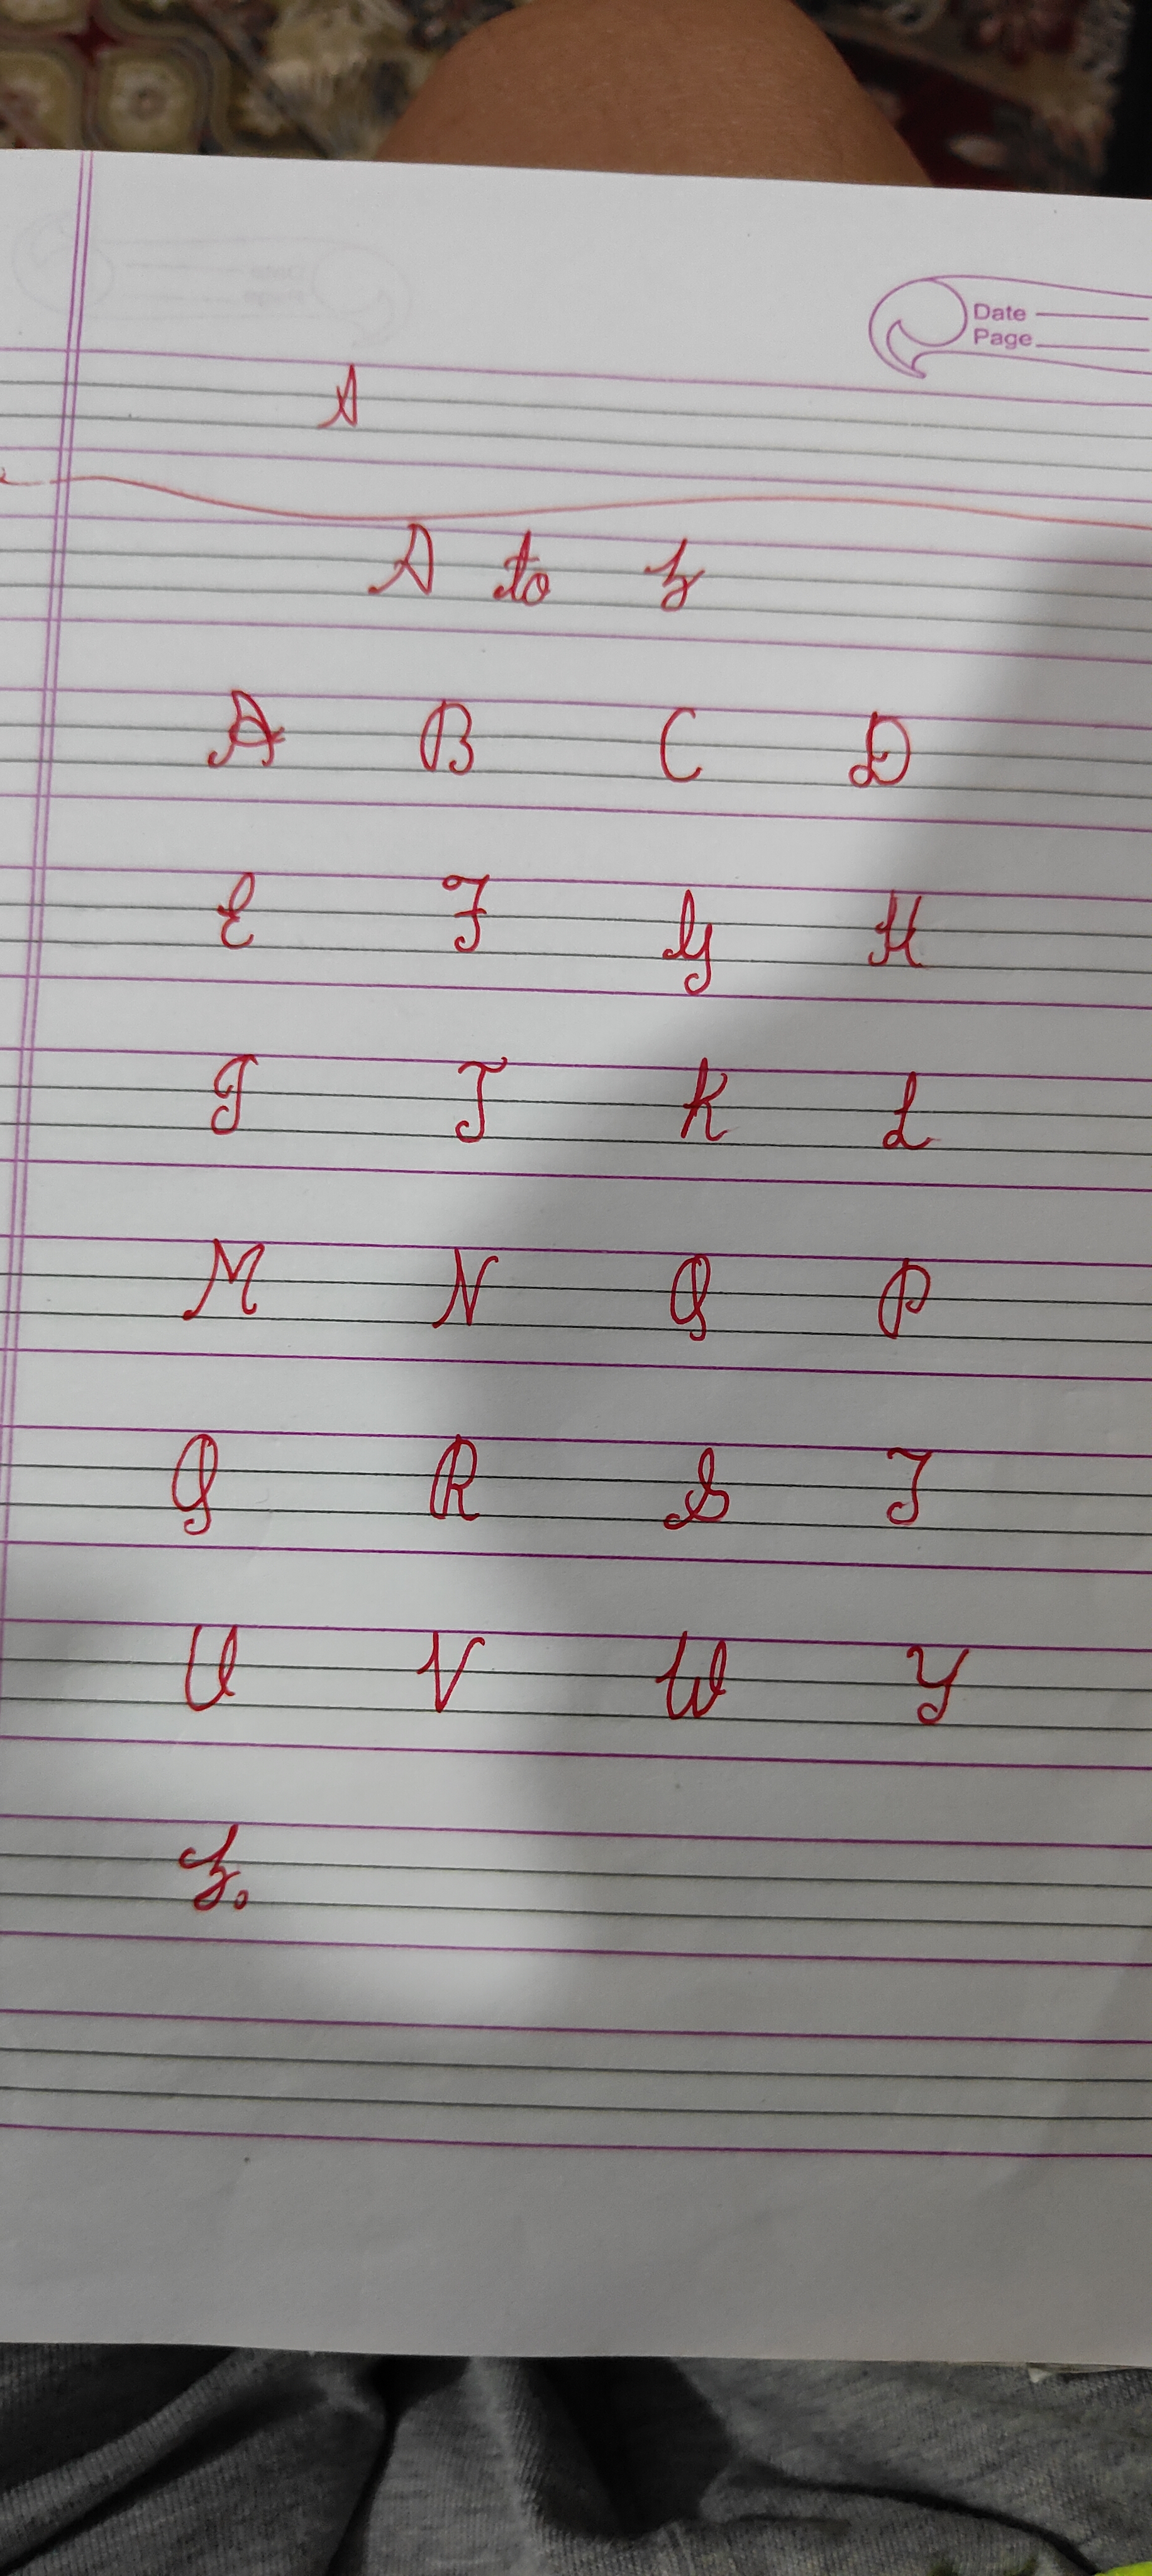 Date
Page
A
A to z
A B C D
E F G H
I J K L
M N O P
Q R S T
U V W Y
z.